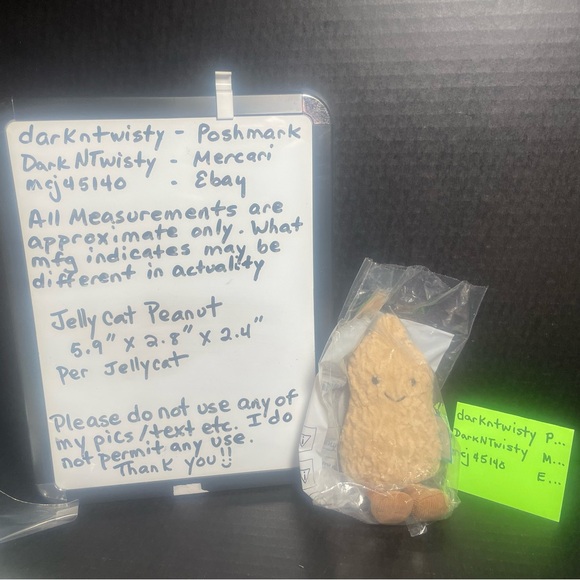 darkntwisty - Poshmark
DarkNTwisty - Mercari
mcj45140 - Ebay
All Measurements are
approximate only. What
mfg indicates may be
different in actuality
Jellycat Peanut
5.9" x 2.8" x 2.4"
per Jellycat
Please do not use any of
my pics/text etc. I do
not permit any use.
Thank you!!
darkntwisty P...
DarkNTwisty M...
mcj45140 E...